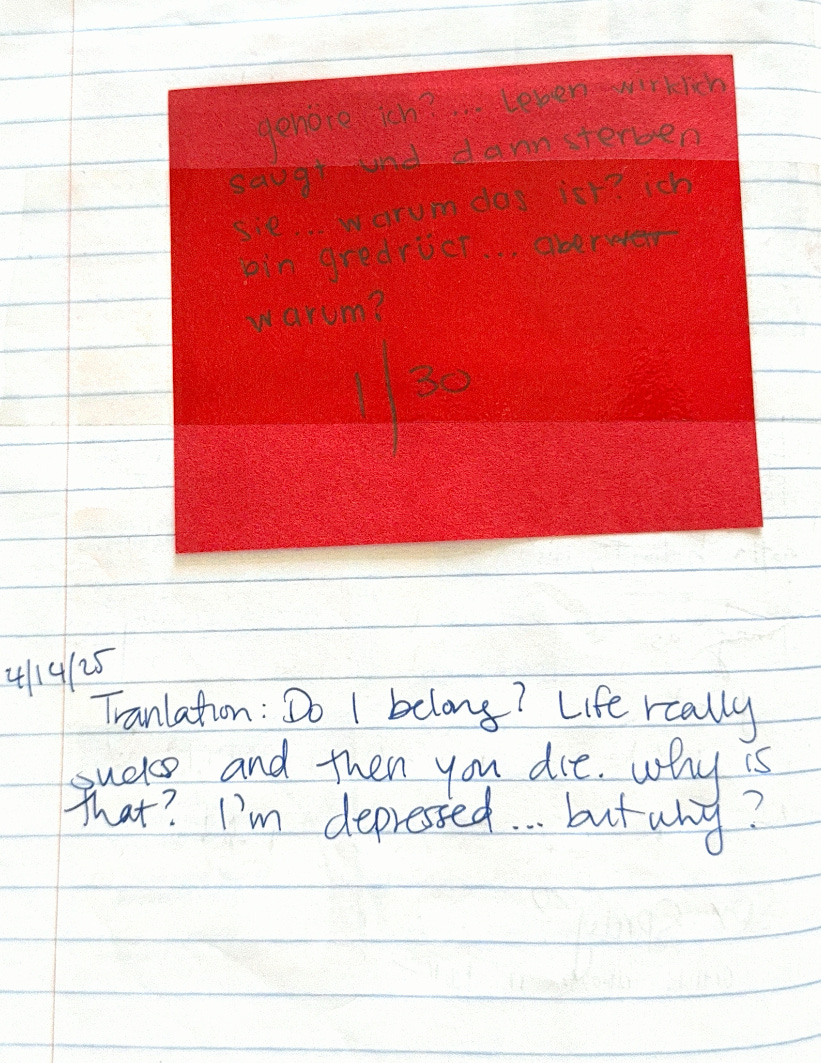 gehöre ich?... Leben wirklich
saugt und dann sterben
sie... warum das ist? ich
bin gredrüct... aber war
warum?
1/30
4/14/25
Tranlation: Do I belong? Life really
sucks and then you die. why is
that? I'm depressed... but why?